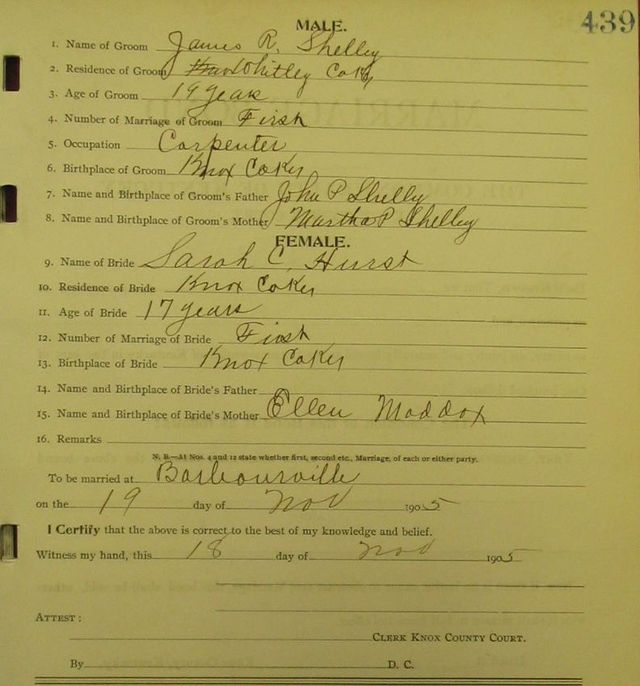 439
MALE.
1. Name of Groom James R. Shelley
2. Residence of Groom Knox Whitley Co Ky
3. Age of Groom 19 years
4. Number of Marriage of Groom First
5. Occupation Carpenter
6. Birthplace of Groom Knox Co Ky
7. Name and Birthplace of Groom's Father John P Shelly
8. Name and Birthplace of Groom's Mother Martha P Shelley
FEMALE.
9. Name of Bride Sarah C, Hurst
10. Residence of Bride Knox Co Ky
11. Age of Bride 17 years
12. Number of Marriage of Bride First
13. Birthplace of Bride Knox Co Ky
14. Name and Birthplace of Bride's Father
15. Name and Birthplace of Bride's Mother Ellen Maddox
16. Remarks
N. B.—At Nos. 4 and 12 state whether first, second etc., Marriage, of each or either party.
To be married at Barbourville
on the 19 day of Nov 1905
I Certify that the above is correct to the best of my knowledge and belief.
Witness my hand, this 18 day of Nov 1905
ATTEST:
CLERK KNOX COUNTY COURT.
By D. C.